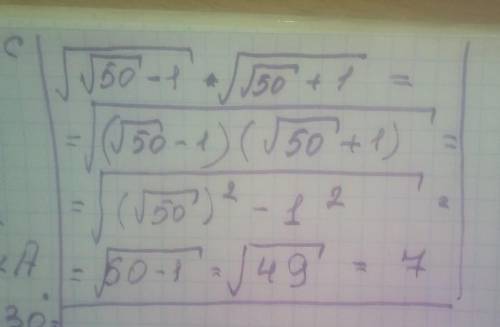 c
√(√50 - 1) • √(√50 + 1) =
= √((√50 - 1)(√50 + 1)) =
= √((√50)² - 1²) =
A = √(50 - 1) = √49 = 7
30°